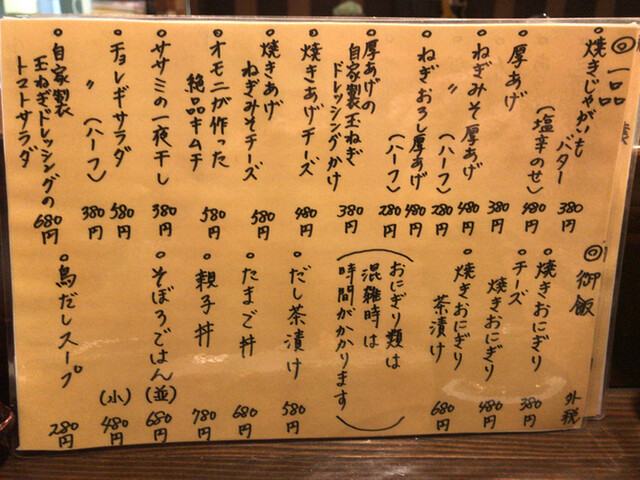 ◎一品
・焼きじゃがいも
バター 380円
(塩辛のせ) 480円
・厚あげ 380円
・ねぎみそ厚あげ 480円
〃 (ハーフ) 280円
・ねぎおろし厚あげ 480円
(ハーフ) 280円
・厚あげの
自家製玉ねぎ
ドレッシングかけ 380円
・焼きあげチーズ 480円
・焼きあげ
ねぎみそチーズ 580円
・オモニが作った
絶品キムチ 580円
・ササミの一夜干し 380円
・チョレギサラダ 580円
〃 (ハーフ) 380円
・自家製
玉ねぎドレッシングの
トマトサラダ 680円
◎御飯
外税
・焼きおにぎり 380円
・チーズ
焼きおにぎり 480円
・焼きおにぎり
茶漬け 680円
(おにぎり類は
混雑時は
時間がかかります)
・だし茶漬け 580円
・たまご丼 680円
・親子丼 780円
・そぼろごはん(並) 680円
(小) 480円
・鳥だしスープ 280円